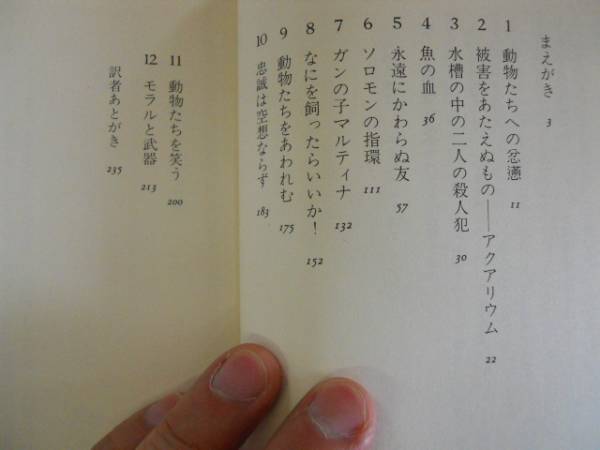 まえがき 3
1 動物たちへの忿懣 11
2 被害をあたえぬもの――アクアリウム 22
3 水槽の中の二人の殺人犯 30
4 魚の血 36
5 永遠にかわらぬ友 57
6 ソロモンの指環 111
7 ガンの子マルティナ 132
8 なにを飼ったらいいか! 152
9 動物たちをあわれむ 175
10 忠誠は空想ならず 183
11 動物たちを笑う 200
12 モラルと武器 213
訳者あとがき 235